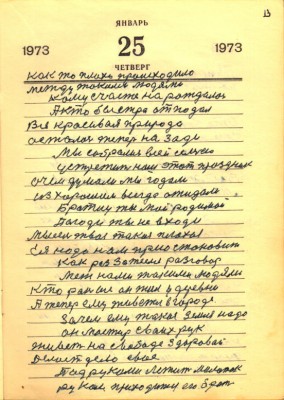 13
ЯНВАРЬ
1973 25 1973
ЧЕТВЕРГ
как то плохи происходило
между такими людями
кому счасте на рождалос
А кто быстро отпадал
Вся красивая природо
осталос тепер на зади
Мы собралис всей семию
устретит наш этот праздник
о чем думали мы годами
из хорошим всегда ожидали
Братику ты мий родимой
Погоди ты не входи
Мысел твоя такая плохая
ея надо нам приостоновит
Как раз зотеяли разговор
Меж нами такими людями
Кто ранше он жил в деревни
А тепер ему живется в городе
Зачем ему такая земля надо
он мастир сваих рук
живет на свабоде здоровай
Делает дело свое
Под руками лежит молоток
рукам приходит его брат